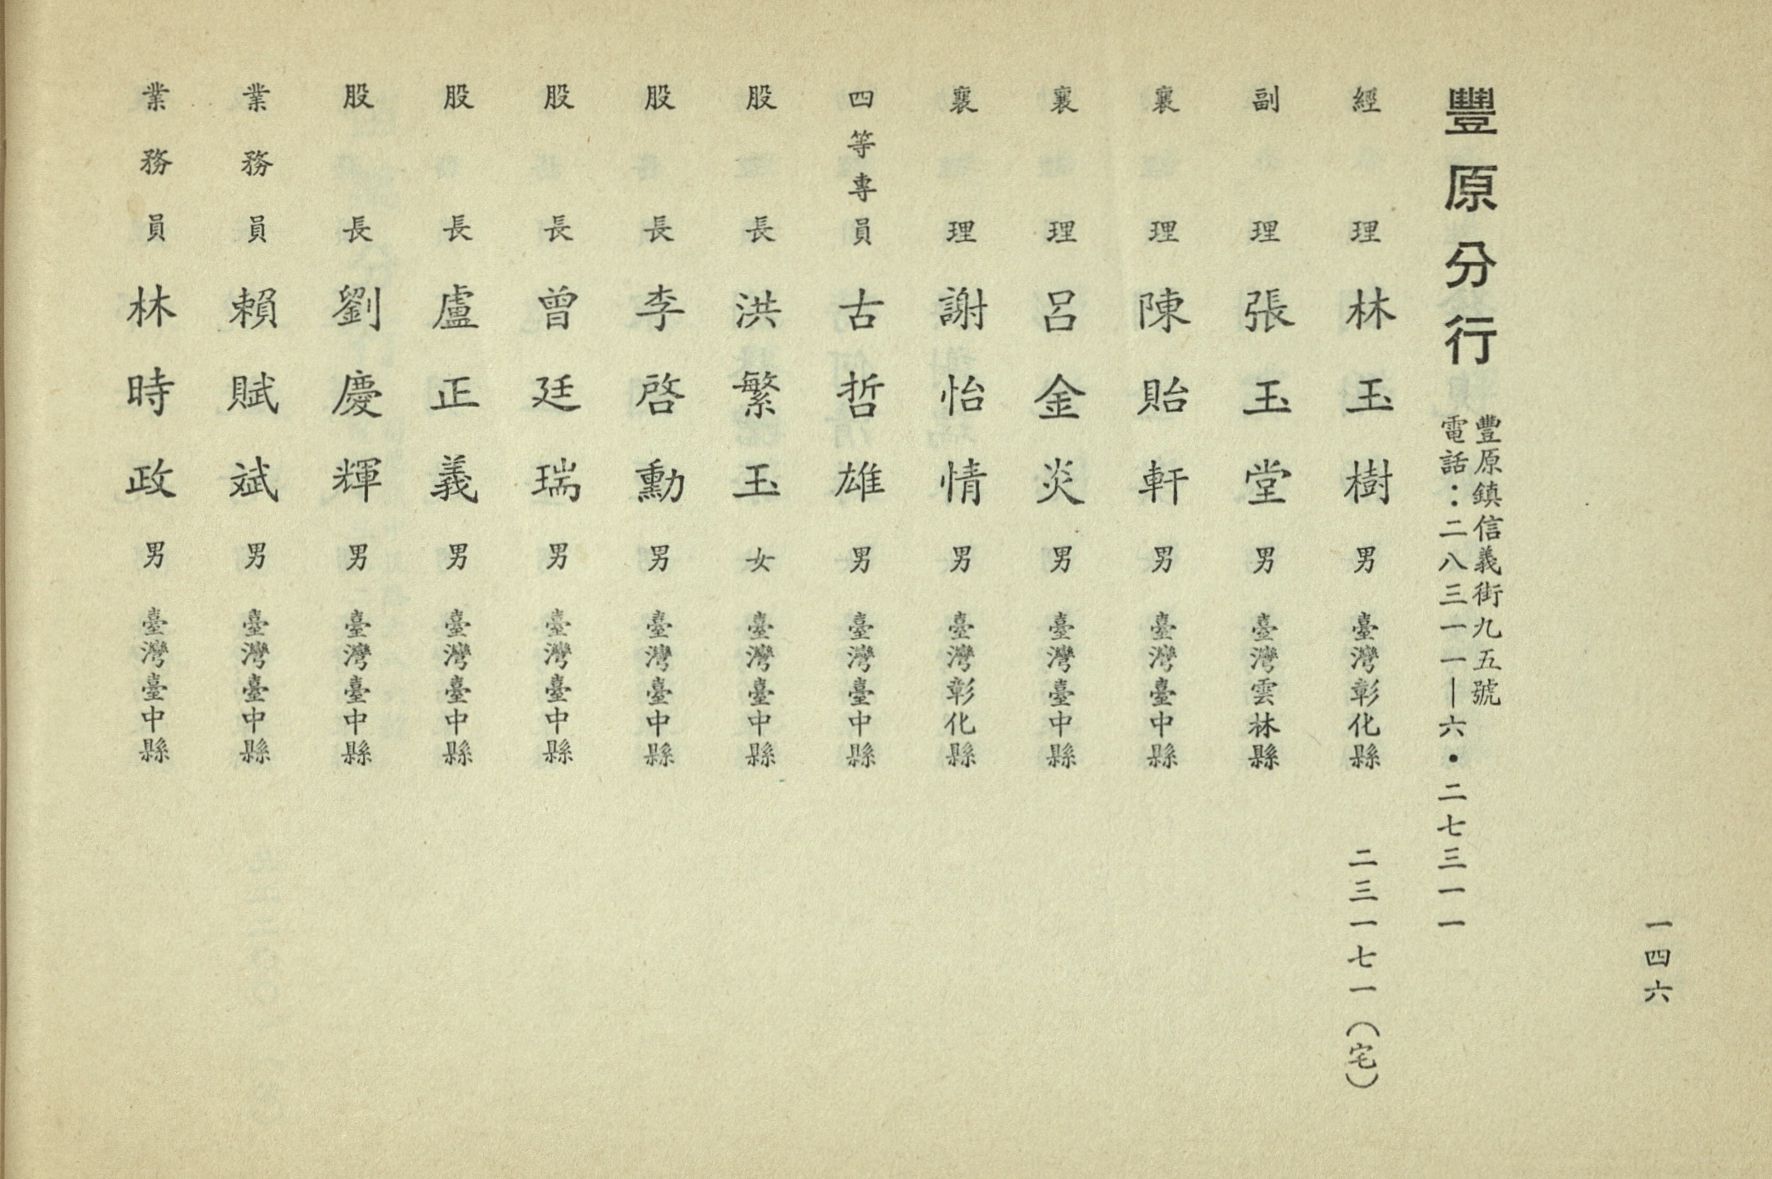 一四六
豐原分行
豐原鎮信義街九五號
電話：二八三一一—六・二七三一一
經理 林玉樹 男 臺灣彰化縣 二三一七一（宅）
副理 張玉堂 男 臺灣雲林縣
襄理 陳貽軒 男 臺灣臺中縣
襄理 呂金炎 男 臺灣臺中縣
襄理 謝怡情 男 臺灣彰化縣
四等專員 古哲雄 男 臺灣臺中縣
股長 洪繁玉 女 臺灣臺中縣
股長 李啓勳 男 臺灣臺中縣
股長 曾廷瑞 男 臺灣臺中縣
股長 盧正義 男 臺灣臺中縣
股長 劉慶輝 男 臺灣臺中縣
業務員 賴賦斌 男 臺灣臺中縣
業務員 林時政 男 臺灣臺中縣